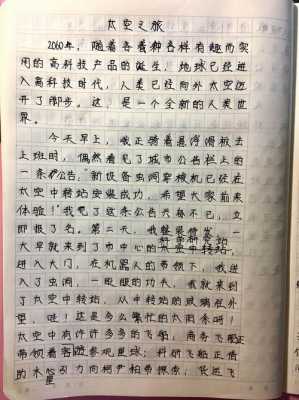 太空之旅
2060年,随着各种各样有趣而实
用的高科技产品的诞生,地球已经进
入高科技时代,人类已经向外太空迈
开了脚步。这,是一个全新的人类世
界。
今天早上,我正骑着悬浮滑板去
上班时,偶然看见了城市公告栏上的
一条公告,"新设备虫洞穿梭机已经在
太空中转站安装成功,希望大家前来
体验!"我见了这条公告天喜不已,立
即报了名。第二天,我整装待发,一
大早就来到了市中心的科学研究站,
进入大门,在机器人的带领下,我进
入了虫洞,一眨眼的功夫,我就来到
了太空中转站,从中转站的玻璃往外
望,哇!这是多么繁忙的太阳系啊!
太空中有许许多多的飞船,商务飞船正
带领着客人游参观星球;科研飞船正借
助木星引力向柯伊柏带探索;货运飞